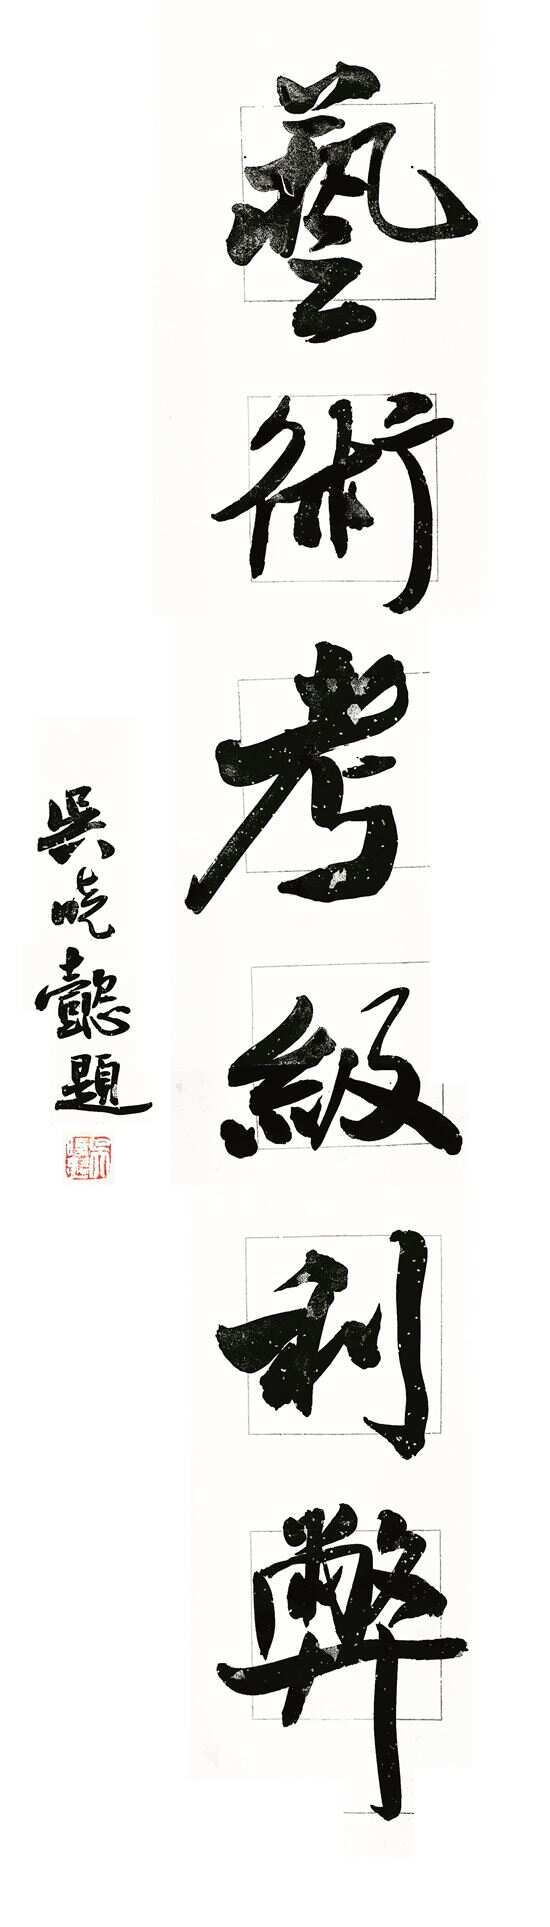 藝術考級利弊
吳曉懿題